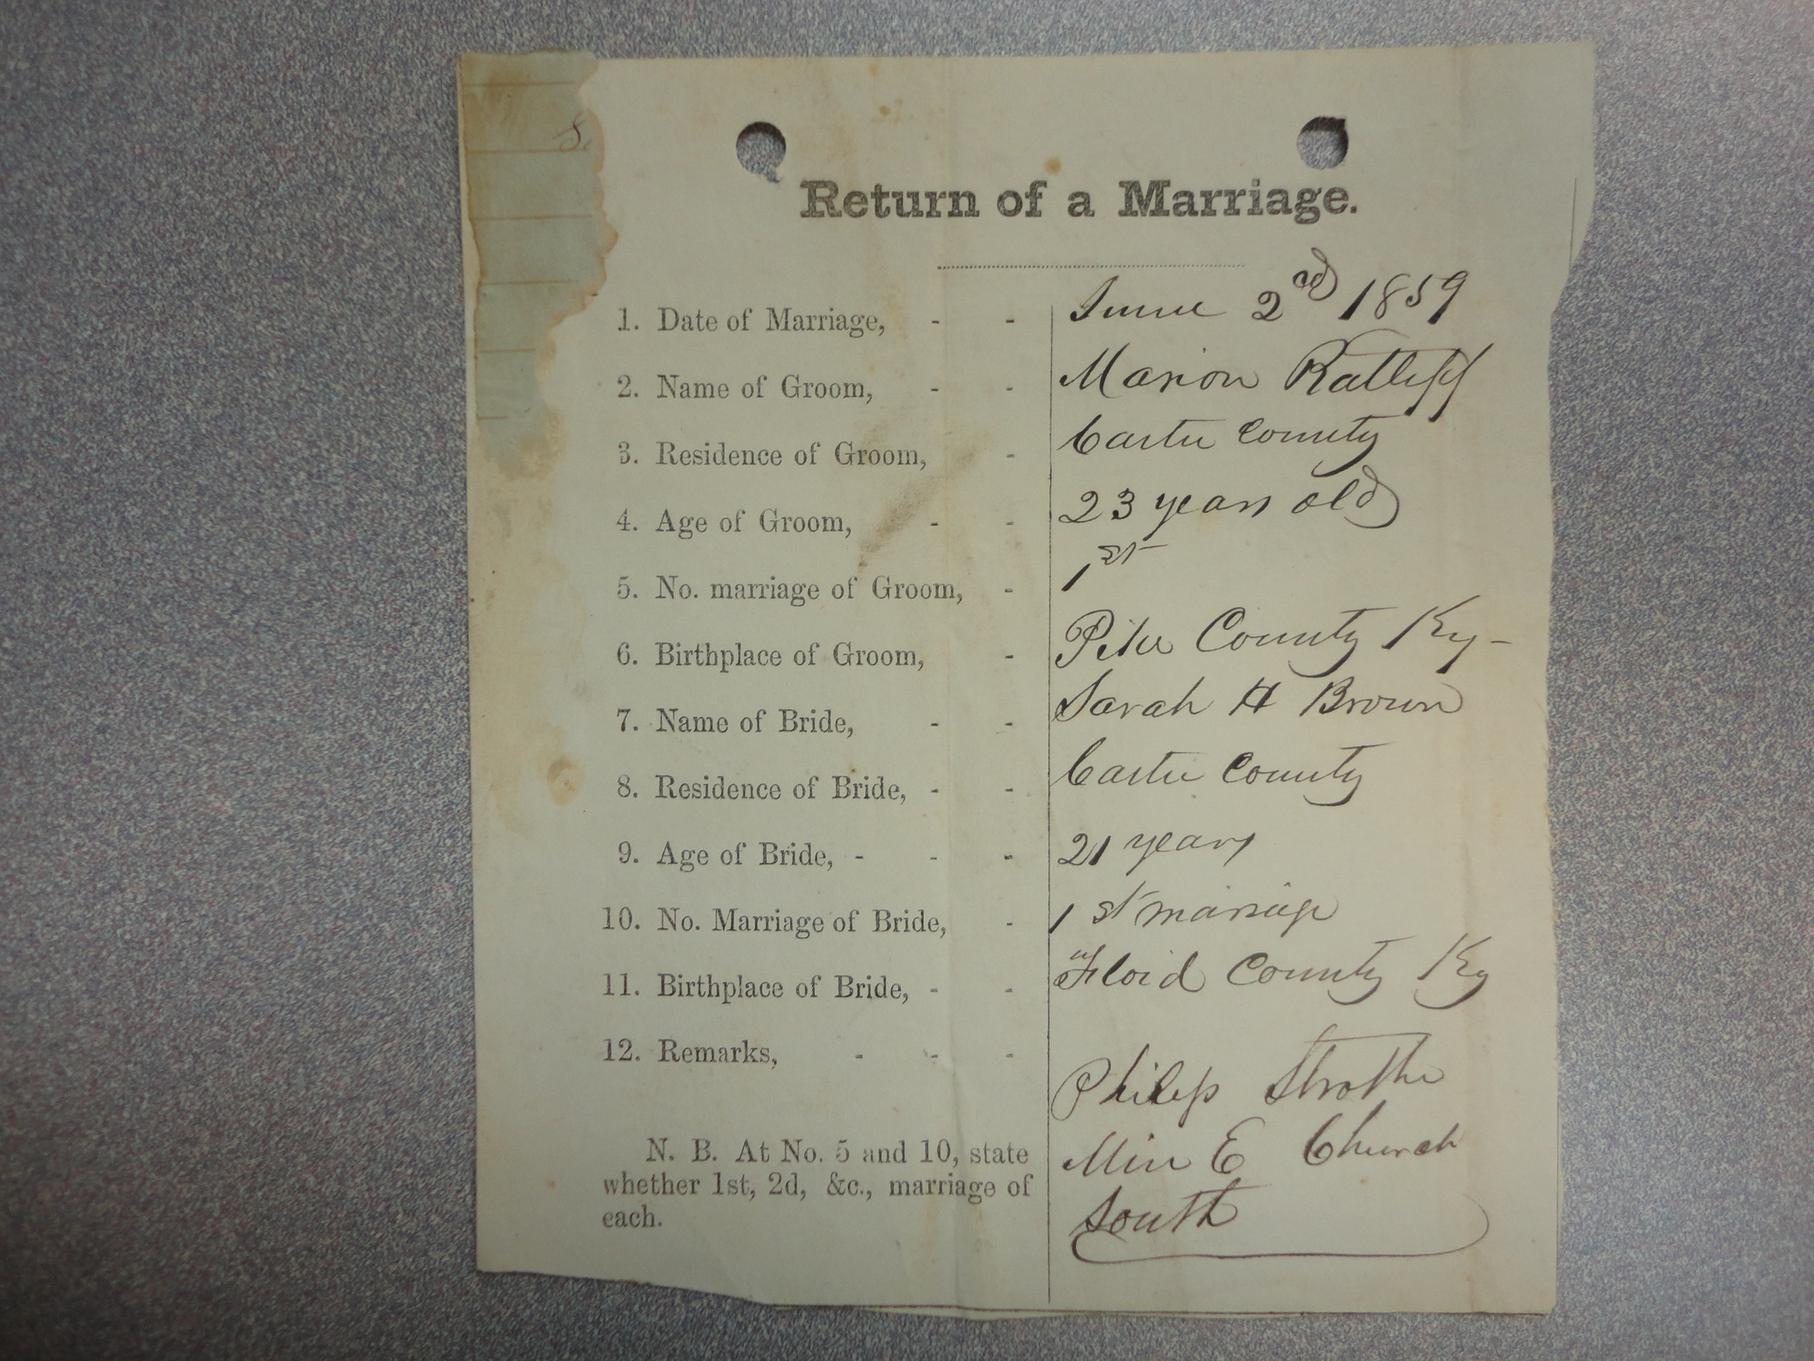 S.
Return of a Marriage.
1. Date of Marriage, - - June 2nd 1859
2. Name of Groom, - - Marion Ratliff
3. Residence of Groom, - Carter County
4. Age of Groom, - - 23 years old
5. No. marriage of Groom, - 1st
6. Birthplace of Groom, - Pike County Ky -
7. Name of Bride, - - Sarah H Brown
8. Residence of Bride, - - Carter County
9. Age of Bride, - - - 21 years
10. No. Marriage of Bride, - 1st marriage
11. Birthplace of Bride, - - Floid County Ky
12. Remarks, - - -
Philip Strother
Min E Church
South
N. B. At No. 5 and 10, state
whether 1st, 2d, &c., marriage of
each.